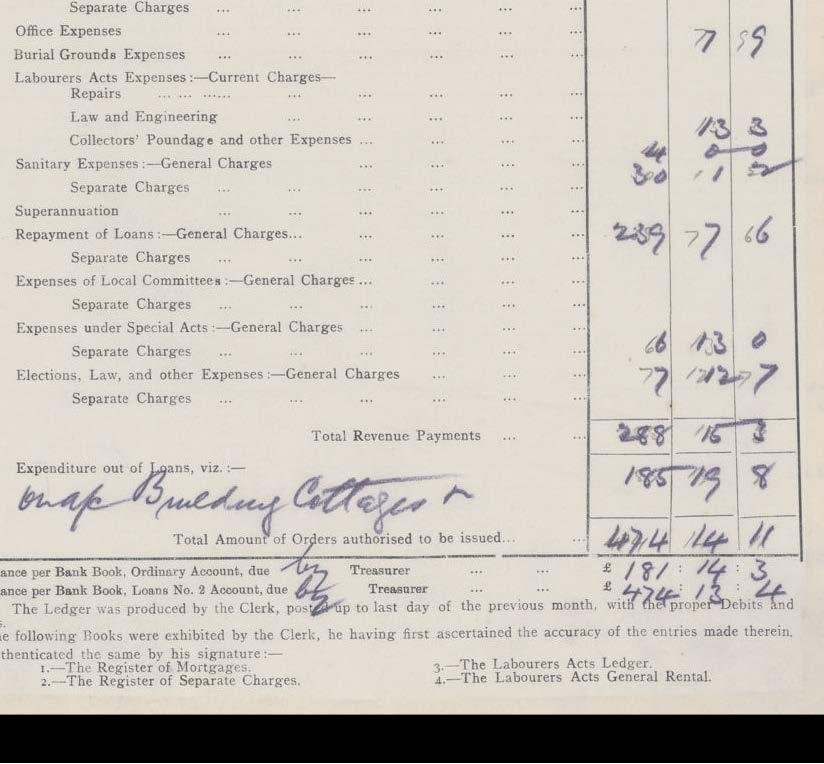 Separate Charges ... ... ... ... ... ...
Office Expenses ... ... ... ... ... ... 7 9
Burial Grounds Expenses ... ... ... ... ... ...
Labourers Acts Expenses:—Current Charges—
Repairs ... ... ...... ... ... ... ... ...
Law and Engineering ... ... ... ... ...
Collectors' Poundage and other Expenses ... ... ... ... 13 3
Sanitary Expenses:—General Charges ... ... ... ... 4 0 0
Separate Charges ... ... ... ... ... ... 30 11
Superannuation ... ... ... ... ... ...
Repayment of Loans:—General Charges... ... ... ... ... 239 7 6
Separate Charges ... ... ... ... ... ...
Expenses of Local Committees:—General Charges ... ... ... ...
Separate Charges ... ... ... ... ... ...
Expenses under Special Acts:—General Charges ... ... ... ...
Separate Charges ... ... ... ... ... ... 6 13 0
Elections, Law, and other Expenses:—General Charges ... ... ... 7 12 7
Separate Charges ... ... ... ... ... ...
Total Revenue Payments ... ... 288 15 3
Expenditure out of Loans, viz.:—
Building Cottages 185 19 8
Total Amount of Orders authorised to be issued... ... 474 14 11
ance per Bank Book, Ordinary Account, due by Treasurer ... ... £ 181 : 14 : 3
ance per Bank Book, Loans No. 2 Account, due by Treasurer ... ... £ 474 : 13 : 4
The Ledger was produced by the Clerk, posted up to last day of the previous month, with the proper Debits and
s.
e following Books were exhibited by the Clerk, he having first ascertained the accuracy of the entries made therein,
thenticated the same by his signature:—
1.—The Register of Mortgages. 3.—The Labourers Acts Ledger.
2.—The Register of Separate Charges. 4.—The Labourers Acts General Rental.